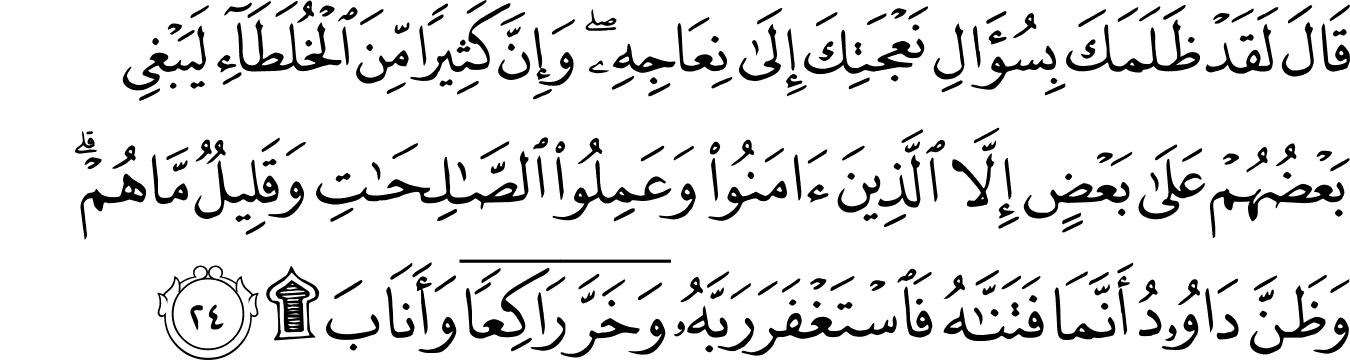 قَالَ لَقَدْ ظَلَمَكَ بِسُؤَالِ نَعْجَتِكَ إِلَىٰ نِعَاجِهِۦ ۖ وَإِنَّ كَثِيرًا مِّنَ ٱلْخُلَطَآءِ لَيَبْغِى
بَعْضُهُمْ عَلَىٰ بَعْضٍ إِلَّا ٱلَّذِينَ ءَامَنُوا۟ وَعَمِلُوا۟ ٱلصَّـٰلِحَـٰتِ وَقَلِيلٌ مَّا هُمْ ۗ
وَظَنَّ دَاوُۥدُ أَنَّمَا فَتَنَّـٰهُ فَٱسْتَغْفَرَ رَبَّهُۥ وَخَرَّ رَاكِعًا وَأَنَابَ ۩ ٢٤